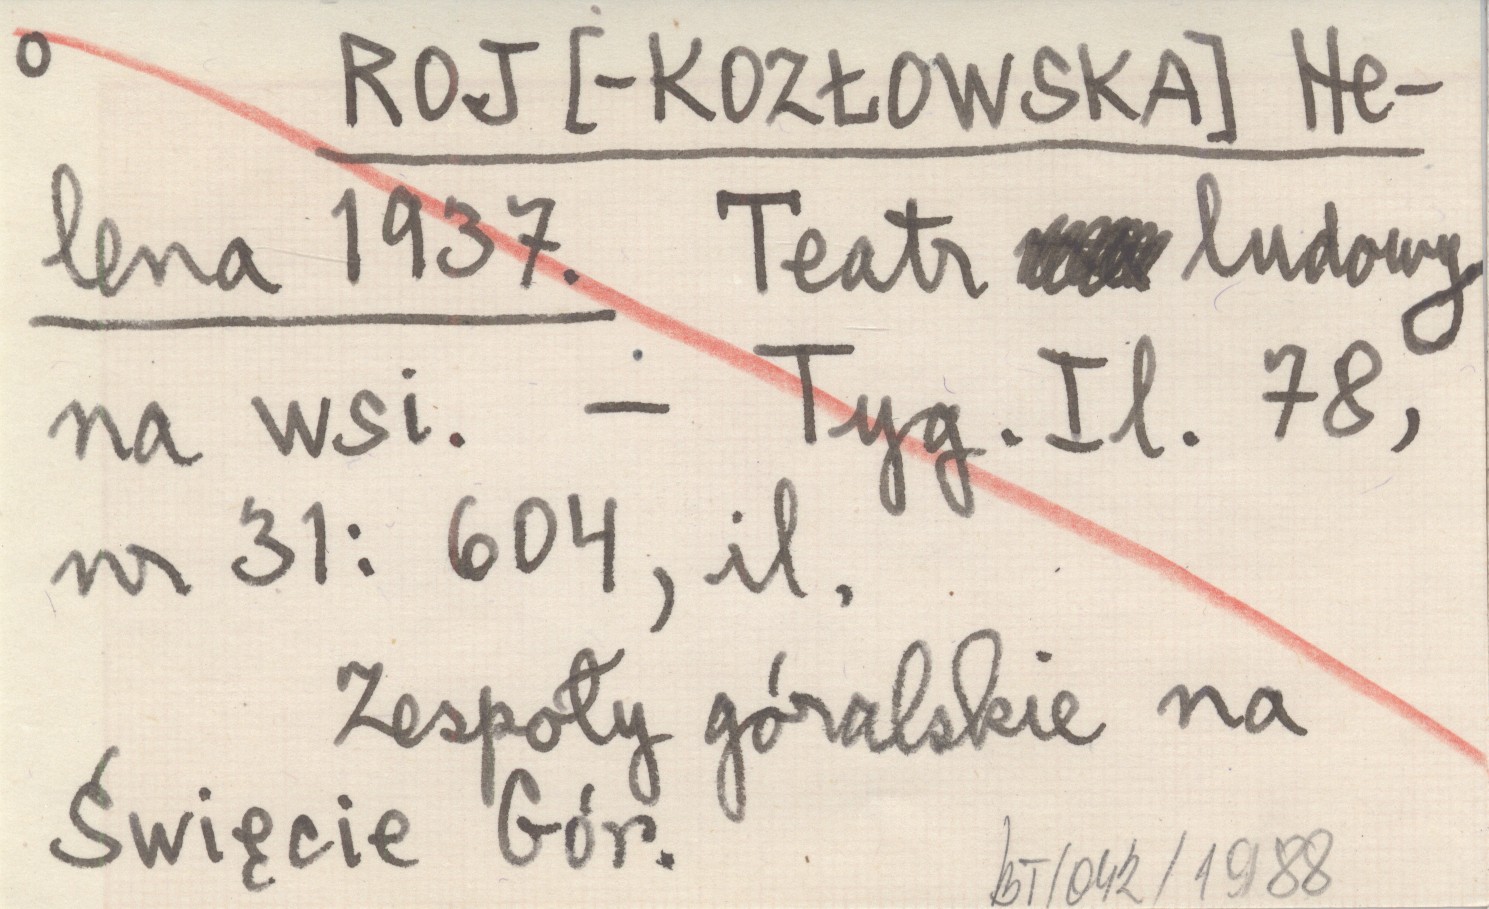 o ROJ [-KOZŁOWSKA] He-
lena 1937. Teatr ludowy
na wsi. — Tyg. Il. 78,
nr 31: 604, il.
Zespoły góralskie na
Święcie Gór.
BT/042/1988